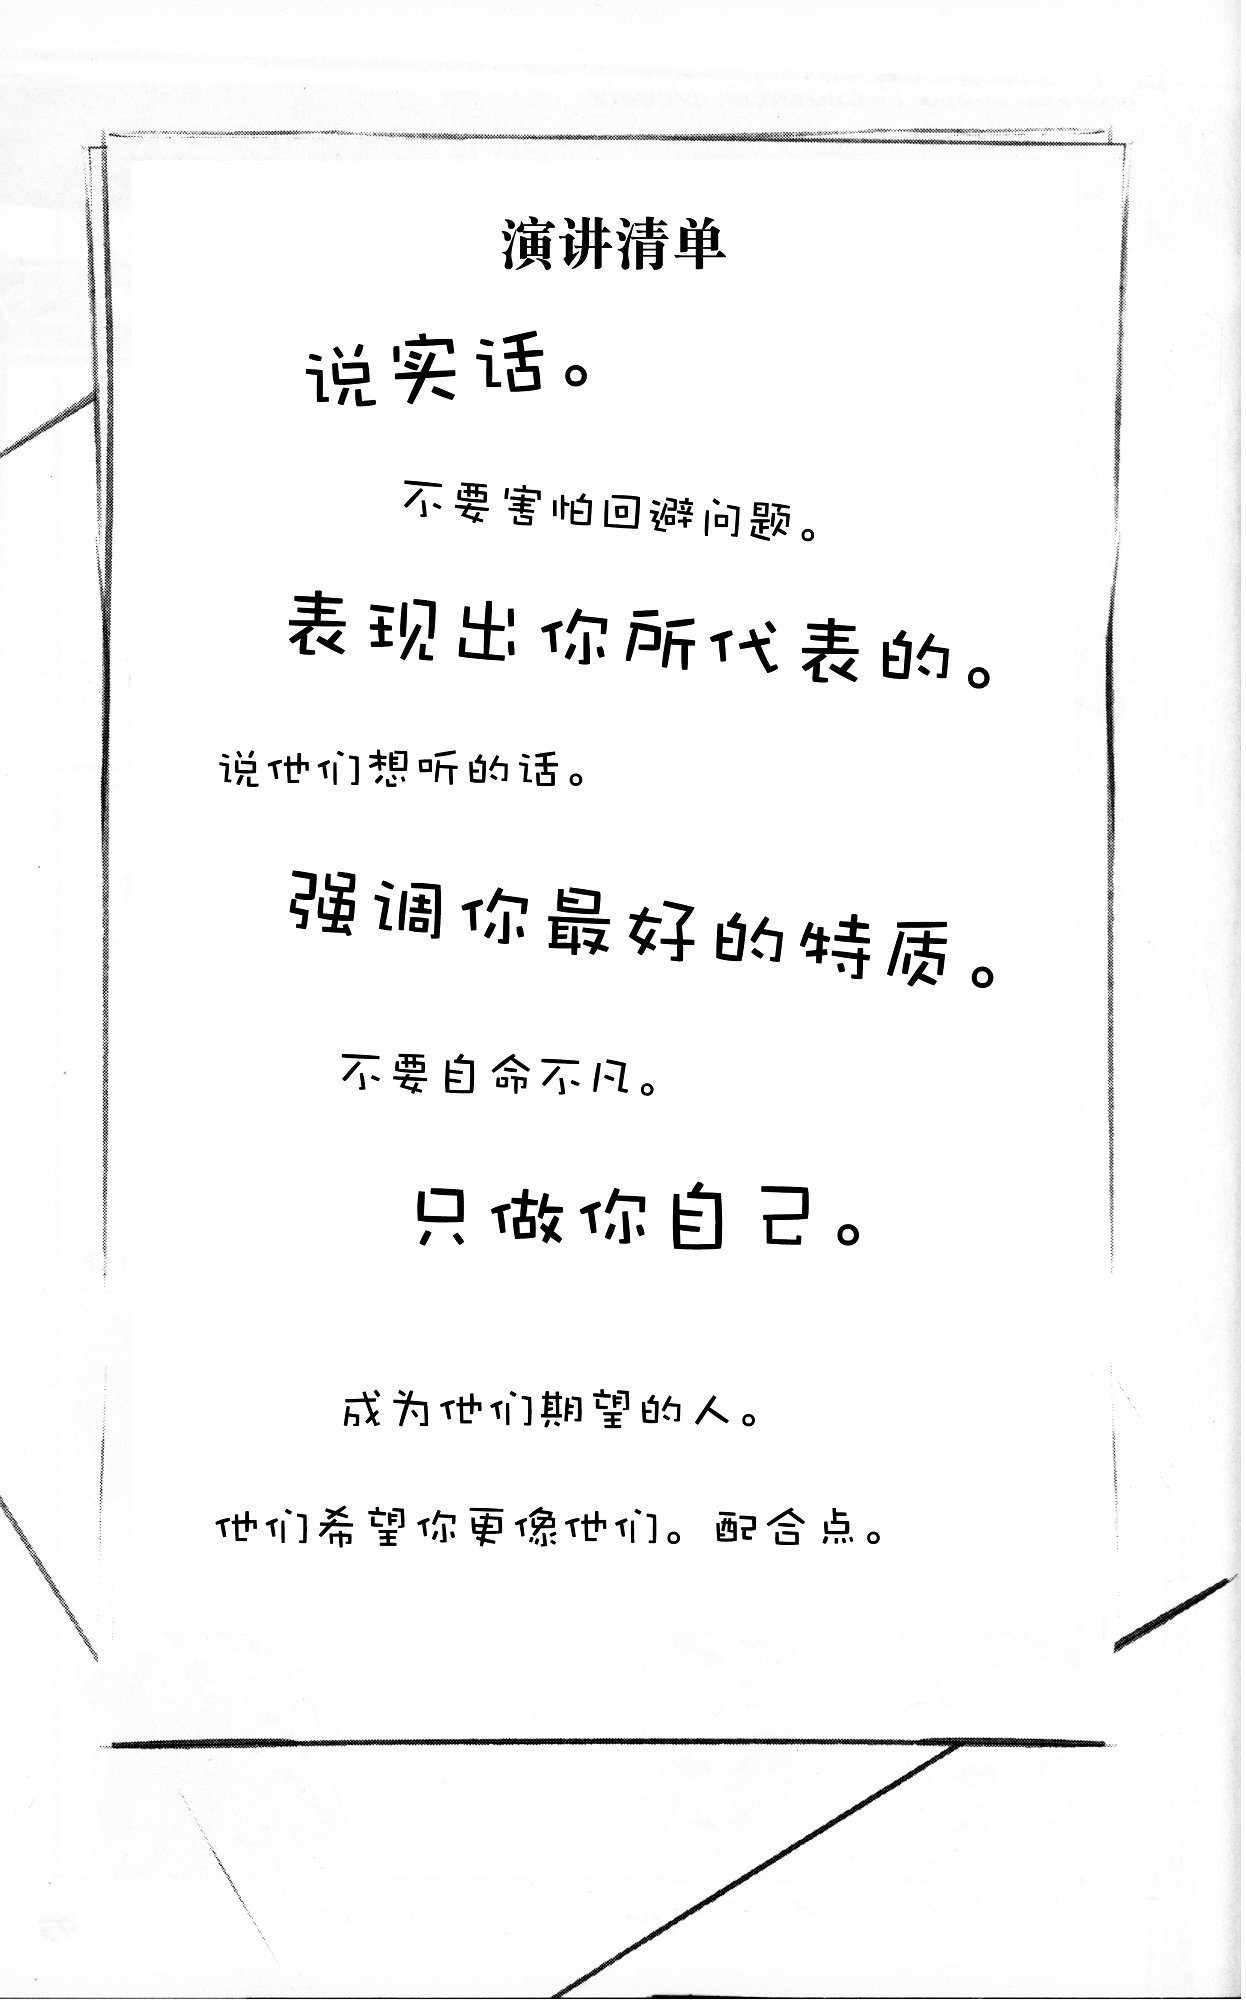 演讲清单
说实话。
不要害怕回避问题。
表现出你所代表的。
说他们想听的话。
强调你最好的特质。
不要自命不凡。
只做你自己。
成为他们期望的人。
他们希望你更像他们。配合点。